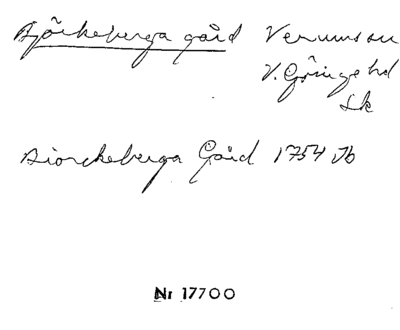 Björkeberga gård Verums sn
V. Göinge hd
Sk
Biorckeberga Gård 1754 Jb
Nr 17700